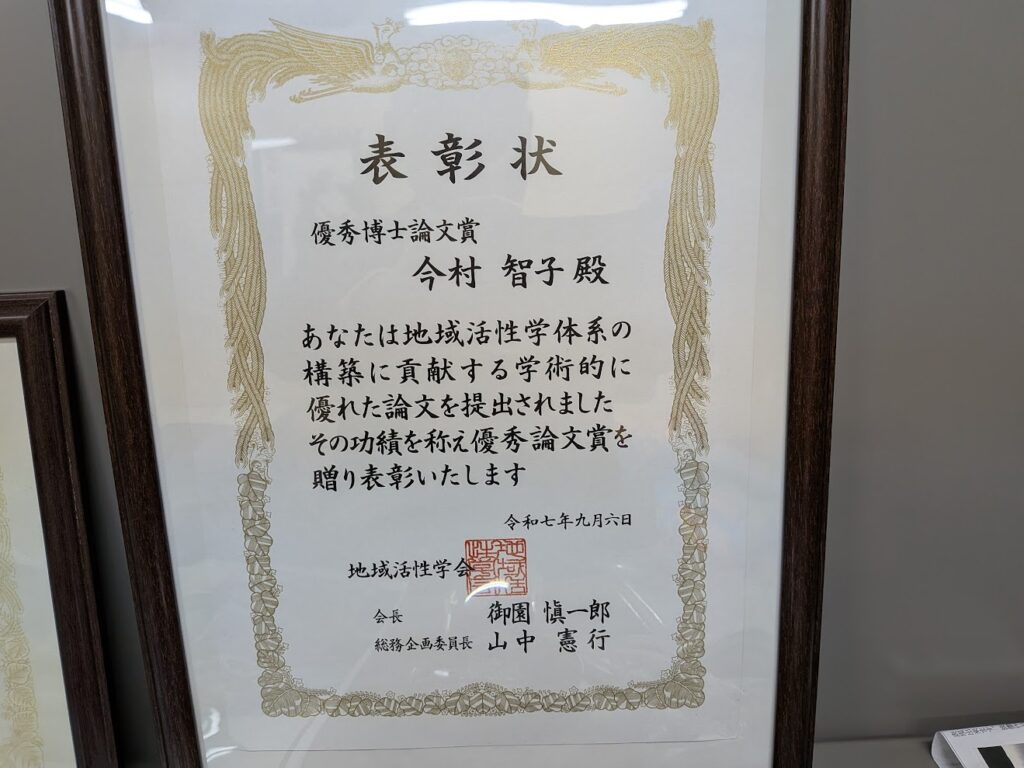 表彰状
優秀博士論文賞
今村 智子 殿
あなたは地域活性学体系の
構築に貢献する学術的に
優れた論文を提出されました
その功績を称え優秀論文賞を
贈り表彰いたします
令和七年九月六日
地域活性学会
会長 御園 慎一郎
総務企画委員長 山中 憲行